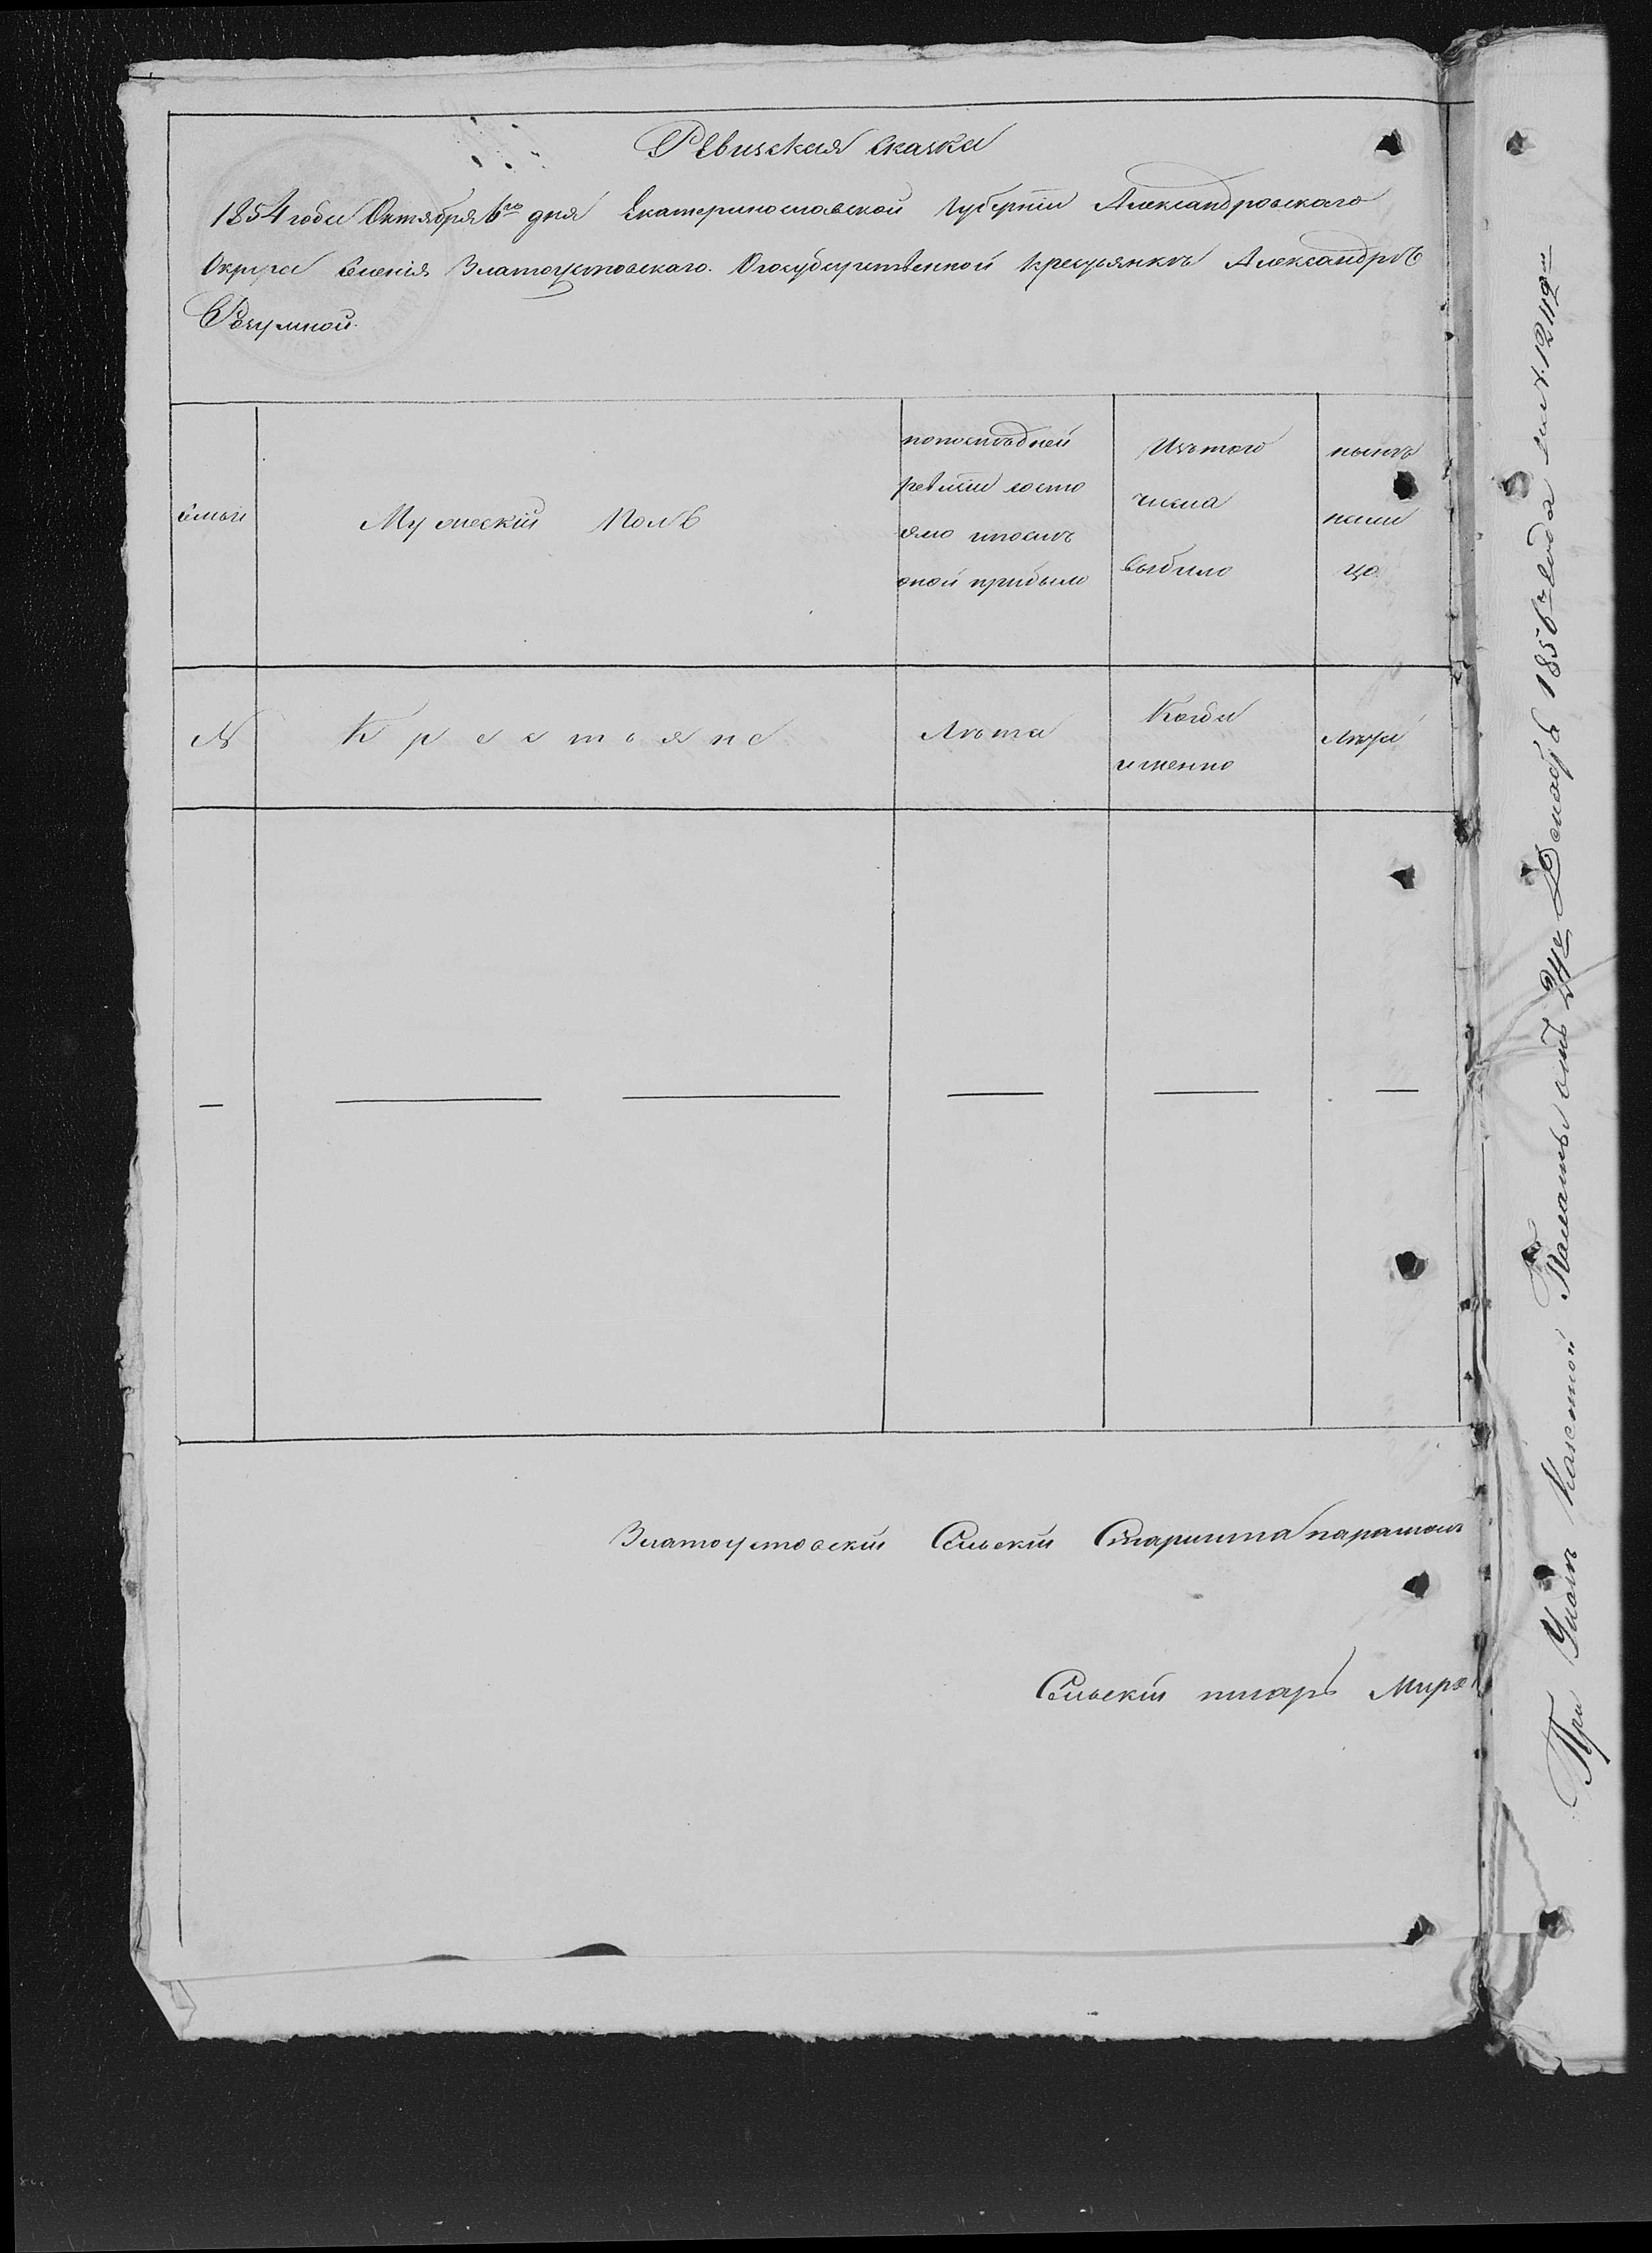 Ревизская сказка
1854 года Октября 6го дня Екатеринославской Губерніи Александровскаго
Округа Селенія Златоустовскаго. Огосударственной крестьянкѣ Александрѣ
Разумной.
Семьи
Мужескій Полъ
попослѣдней
ревизіи состо
яло ипослѣ
оной прибыло
Изътого
числа
выбыло
нынѣ
нали
цо
№
Крестьяне
Лѣта
Когда
именно
Лѣта
Златоустовскій Сельскій Старшина
Сельскій писарь Миро
При Указѣ Казенной Палаты отъ 24го Декабря 1856го года за №